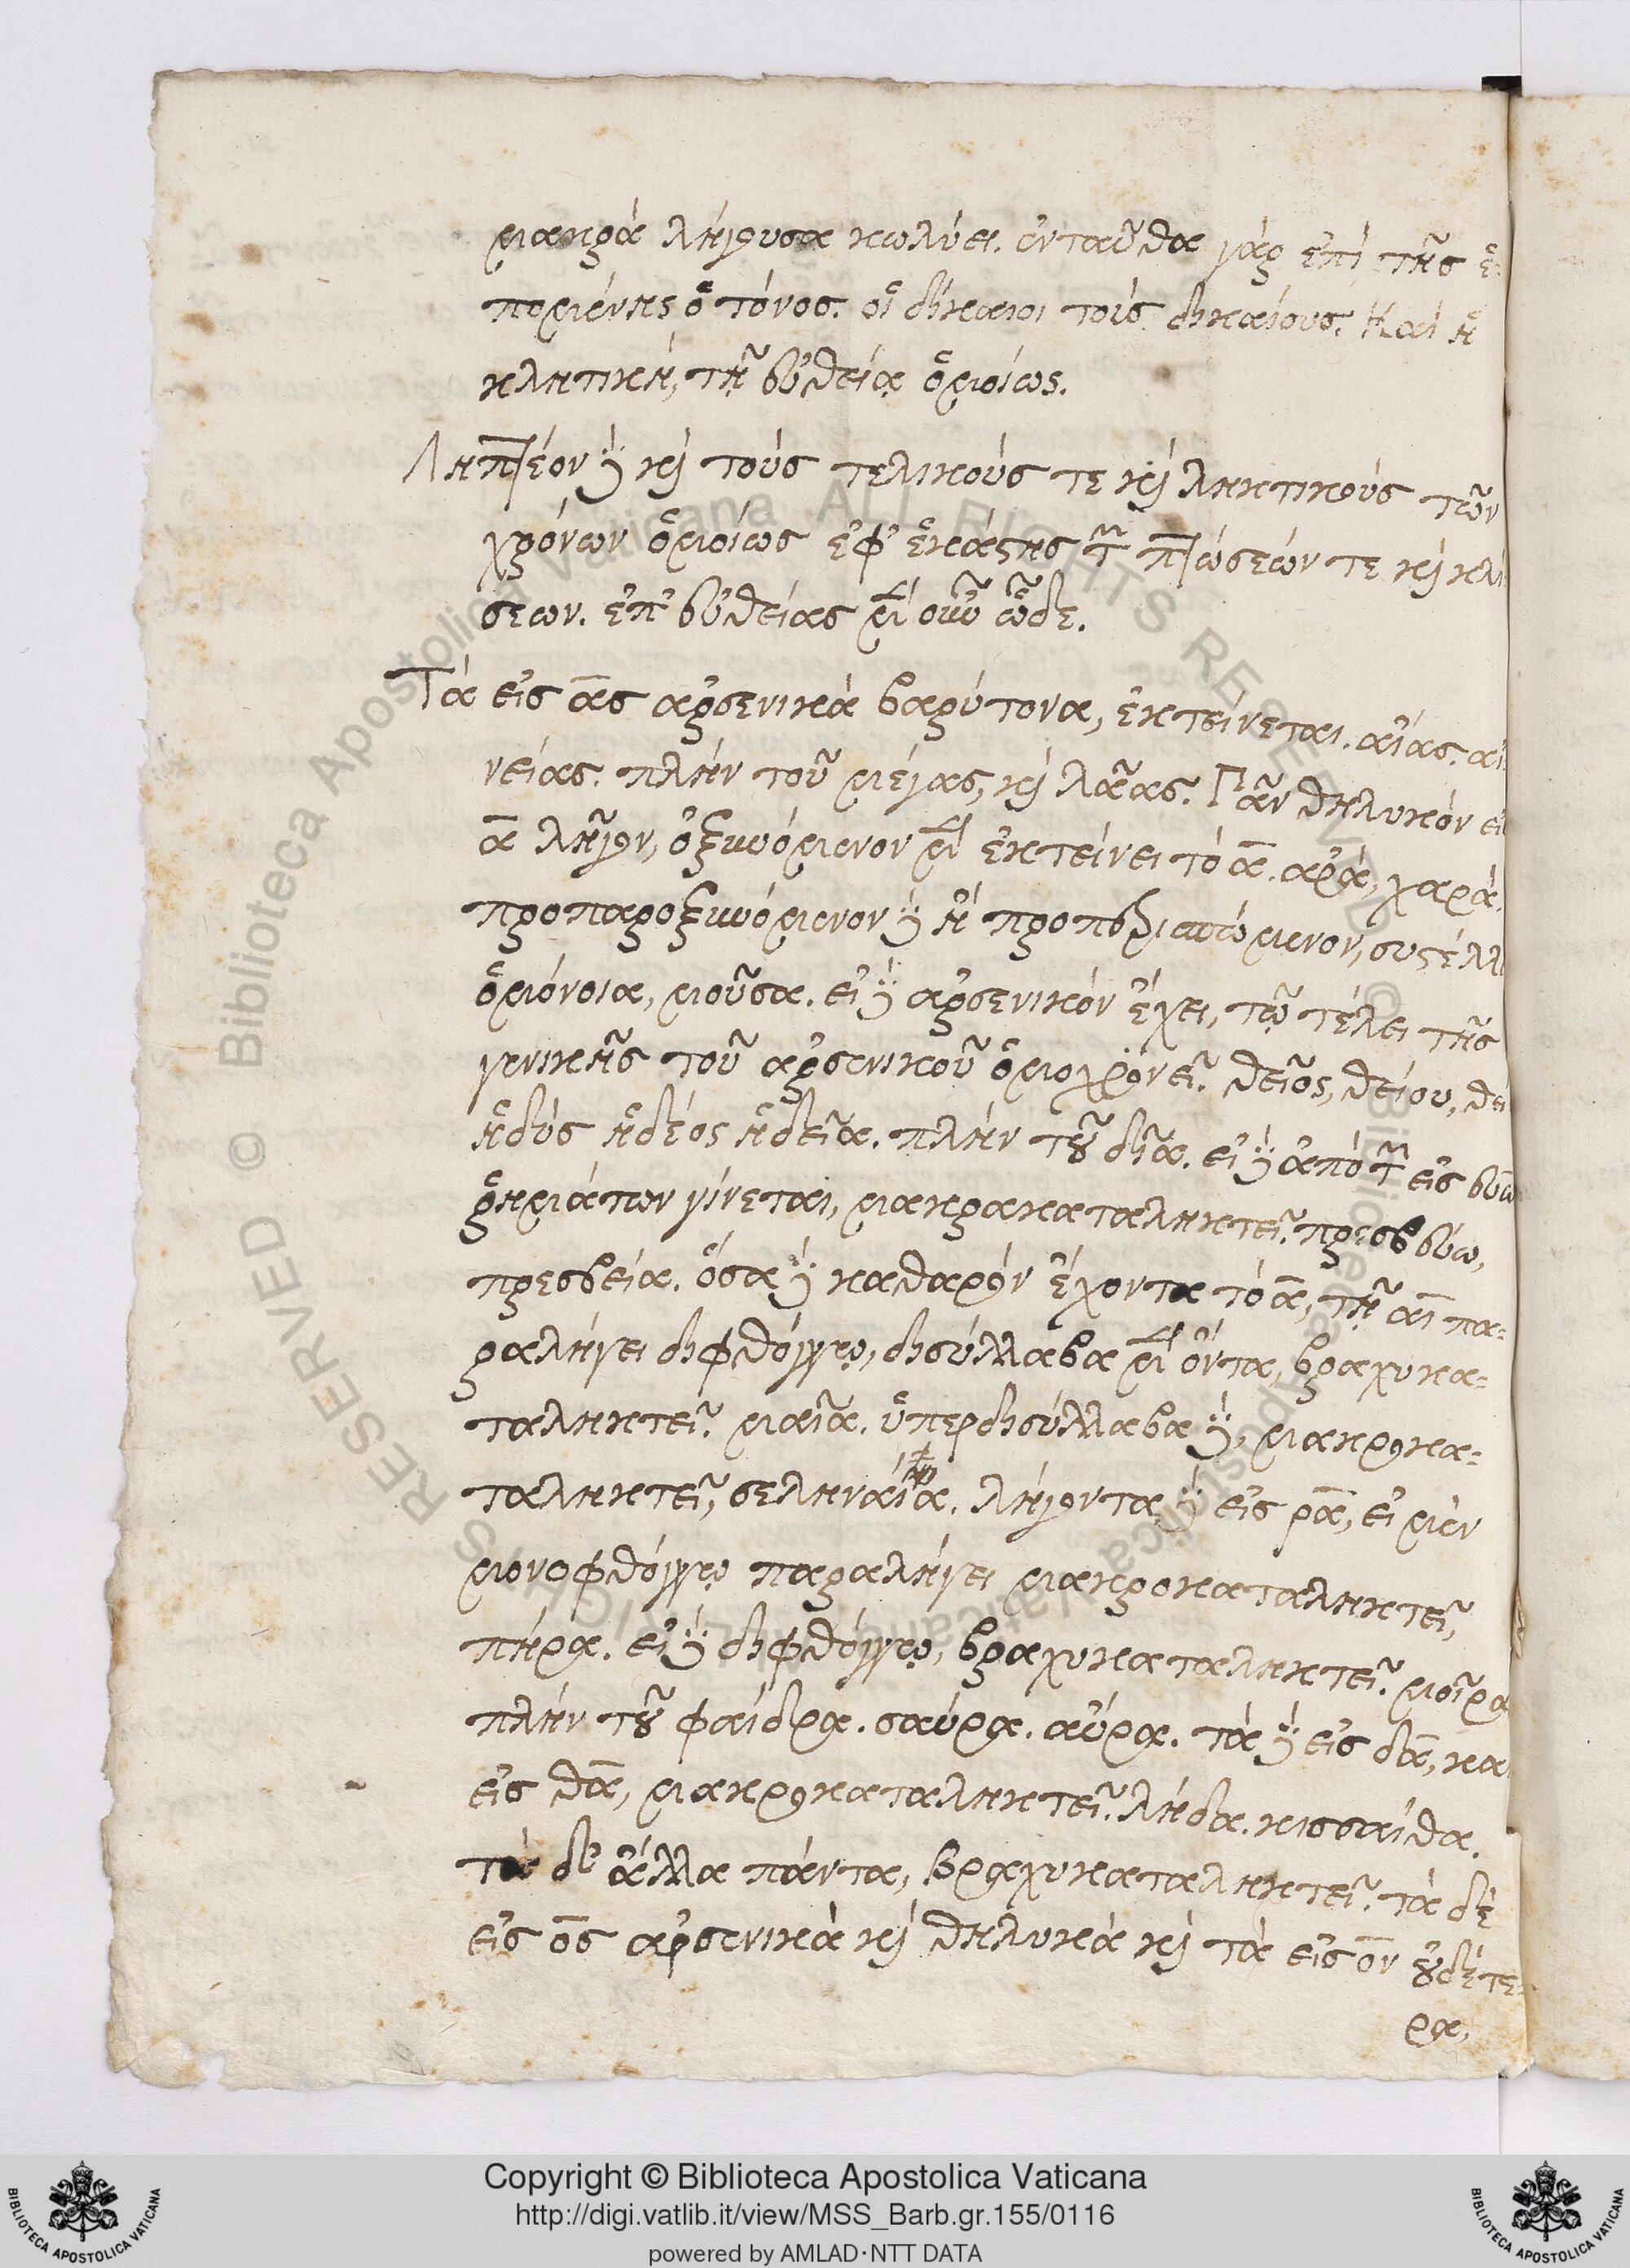 μακρὰ λήγουσα κωλύει. ἐνταῦθα γὰρ ἐπὶ τῆς ἑ
πομένης ὁ τόνος. οἱ δίκαιοι τοὺς δικαίους. Καὶ ἡ
κλητικὴ, τῇ εὐθείᾳ ὁμοίως.
Ληπτέον δὲ καὶ τοὺς τελικούς τε καὶ ληκτικοὺς τῶν
χρόνων ὁμοίως ἐφ' ἑκάστης τῶν πτώσεών τε καὶ κλί
σεων. ἐπ' εὐθείας μὲν οὖν ὧδε.
Τὰ εἰς ας ἀρσενικὰ βαρύτονα, ἐκτείνεται. αἴας. αἰ
νείας. πλὴν τοῦ μέγας, καὶ λᾶας. Πᾶν θηλυκὸν εἰ
α λῆγον, ὀξυνόμενον μὲν ἐκτείνει τὸ α. ἀρά, χαρά.
προπαροξυνόμενον δὲ ἢ προπερισπώμενον, συστέλλ
ὁμόνοια, μοῦσα. εἰ δὲ ἀρσενικὸν ἔχει, τῷ τέλει τῆς
γενικῆς τοῦ ἀρσενικοῦ ὁμοχρονεῖ. θεῖος, θείου, θεί
ἡδὺς ἡδέος ἡδεῖα. πλὴν τοῦ δῖα. εἰ δὲ ἀπὸ τῶν εἰς εύω
ῥημάτων γίνεται, μακρακαταληκτεῖ. πρεσβεύω,
πρεσβεία. ὅσα δὲ καθαρὸν ἔχοντα τὸ α, τῇ αι πα-
ραλήγει διφθόγγῳ, δισύλλαβα μὲν ὄντα, βραχυκα-
ταληκτεῖ. μαῖα. ὑπερδισύλλαβα δὲ, μακροκα-
ταληκτεῖ, σεληναία. λήγοντα δὲ εἰς ρα, εἰ μὲν
μονοφθόγγῳ παραλήγει μακροκαταληκτεῖ,
πήρα. εἰ δὲ διφθόγγῳ, βραχυκαταληκτεῖ. μοῖρα
πλὴν τοῦ φαίδρα. σαύρα. αὔρα. τὰ δὲ εἰς δα, κα
εἰς θα, μακροκαταληκτεῖ. λήδα. κισσαίθα.
τὰ δ' ἄλλα πάντα, βραχυκαταληκτεῖ. τὰ δὲ
εἰς ος ἀρσενικὰ καὶ θηλυκὰ καὶ τὰ εἰς ον οὐδέτε-
ρα,
Copyright © Biblioteca Apostolica Vaticana
http://digi.vatlib.it/view/MSS_Barb.gr.155/0116
powered by AMLAD·NTT DATA